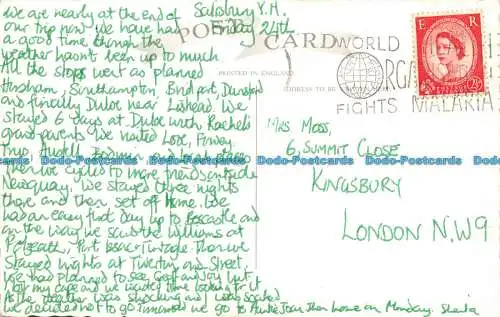 Salisbury Y.H.
Friday 24th
We are nearly at the end of
our trip now. We have had
a good time though the
weather hasn't been up to much
All the stops went as planned
Horsham, Southampton, Bridport,
and finally Duloe near Liskeard. We
stayed 6 days at Duloe with Rachel's
grandparents. We visited Looe, Fowey
Then we cycled to more friends outside
Newquay. We stayed three nights
there and then set off home. We
had an easy first day up to Boscastle and
on the way we saw the Williams at
Polzeath, Port Isaac, Tintagel. Then we
stayed nights at Tiverton and Street.
We had planned to see Geoff and Joy but
my cape and we wasted time looking for it
As the weather was shocking and I was soaked
we decided not to go. Tomorrow we go to Auntie Joan then home on Monday. Sheila
POST CARD
PRINTED IN ENGLAND
ADDRESS TO BE
WORLD
FIGHTS MALARIA
E R
POSTAGE REVENUE
2½D
MRS MOSS,
6, SUMMIT CLOSE
KINGSBURY
LONDON N.W.9
Dodo-Postcards Dodo-Postcards Dodo-Postcards Dodo-Postcards Dodo-Postcards